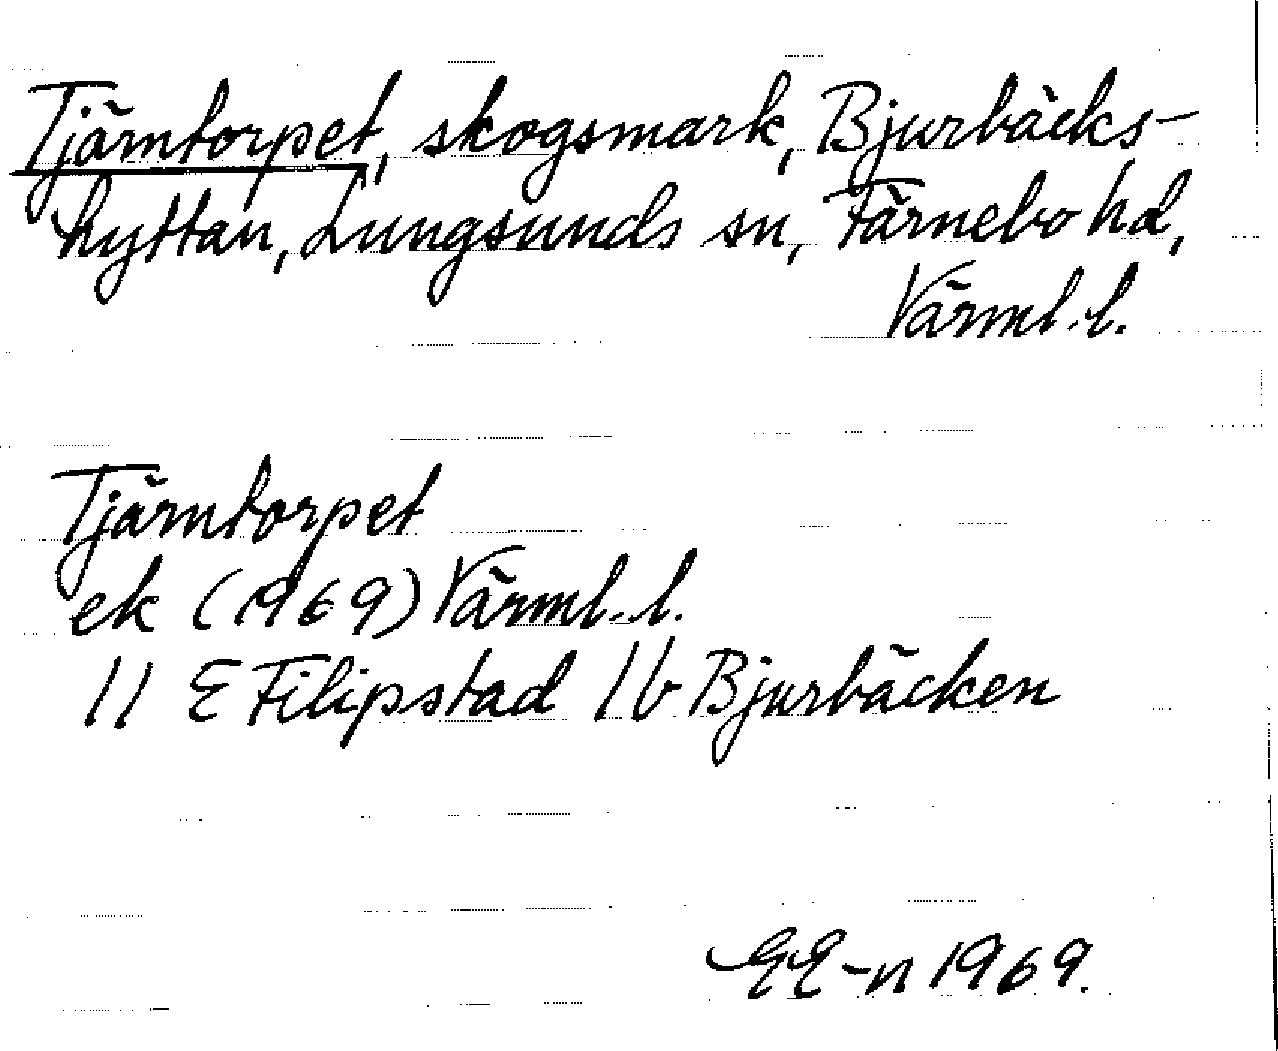 Tjärntorpet, skogsmark, Bjurbäcks-
hyttan, Lungsunds sn, Färnebo hd,
Värml. l.
Tjärntorpet
ek (1969) Värml. l.
11 E Filipstad 1 b Bjurbäcken
EE-n 1969.